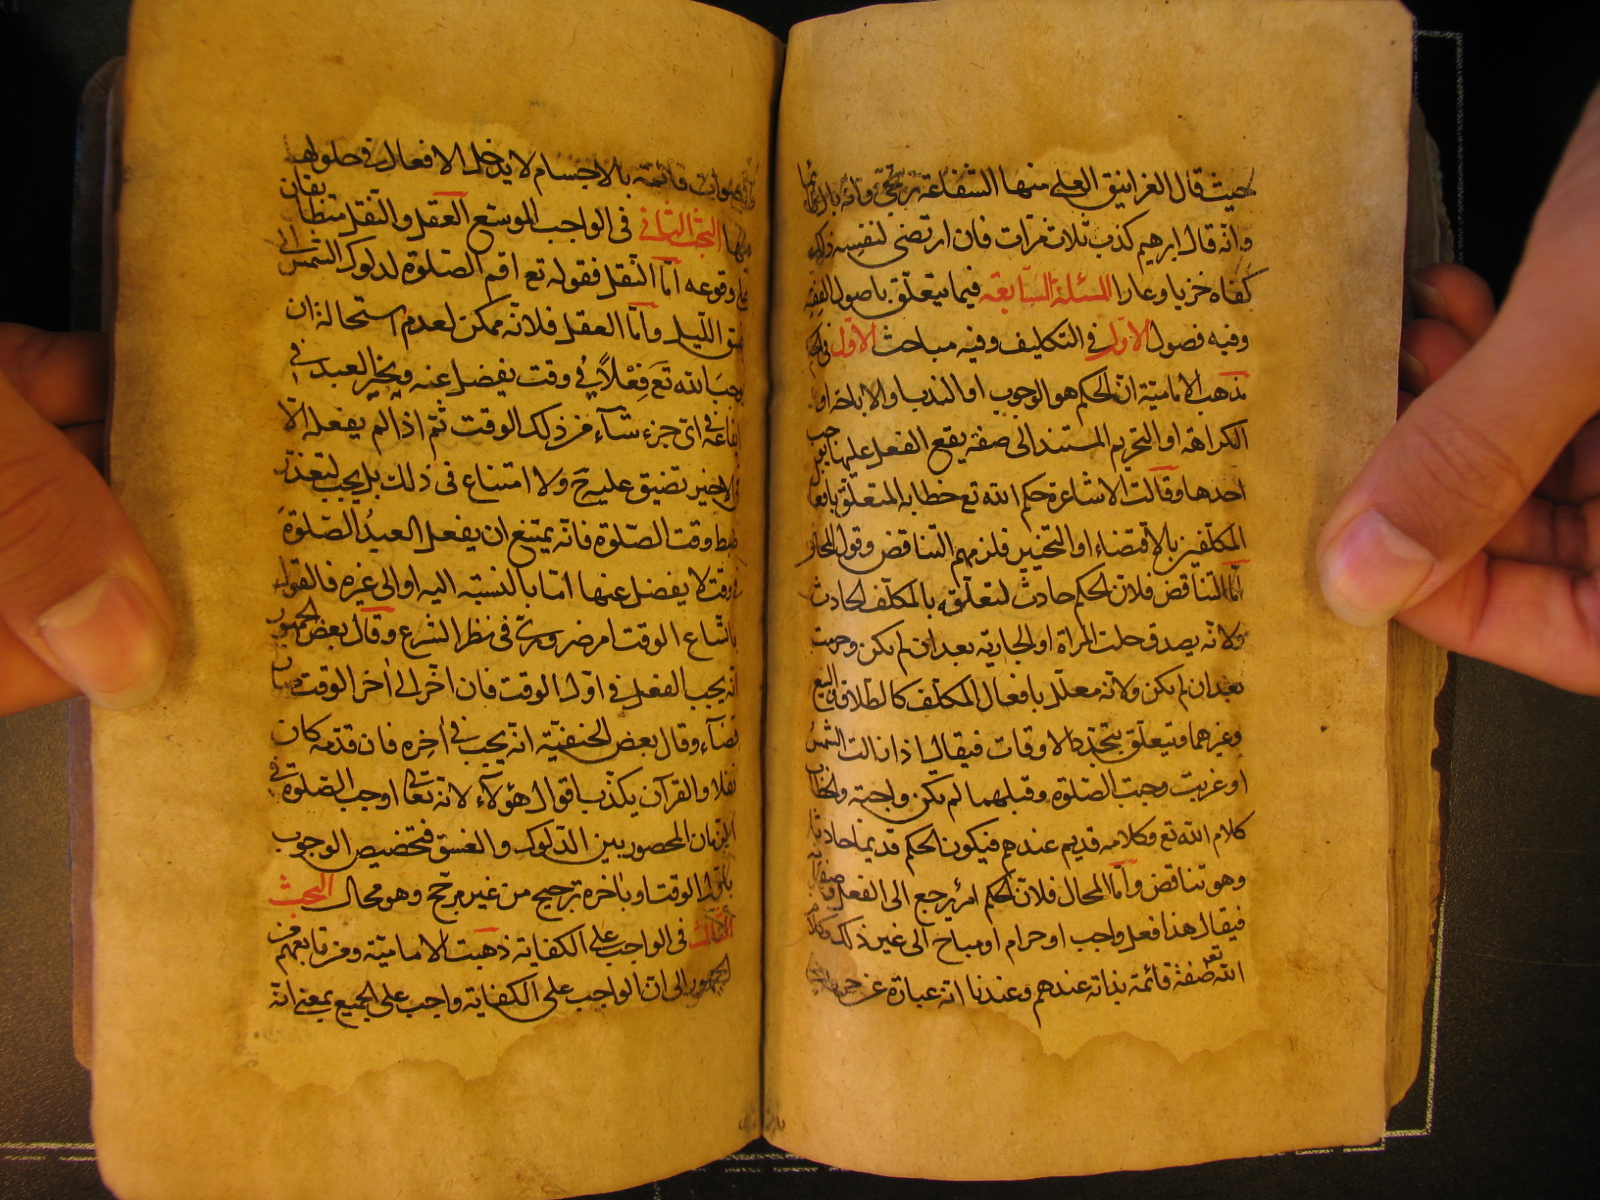 حيث قال الغرانيق العلى منها الشفاعة ترتجى وانه
وانّه قال ابرهيم كذب ثلاث مرات فان ارتضى لنفسه
كفاه خزيا وعارا المسئلة السابعة فيما يتعلّق باصول الفقه
وفيه فصول الاول فى التكليف وفيه مباحث الاوّل فى الحكم
ذهبت الامامية انّ الحكم هو الوجوب او الندب او الاباحة او
الكراهة او التحريم المستند الى صفة يقع الفعل عليها
احدها وقالت الاشاعرة حكم الله تع خطابه المتعلّق بافعال
المكلّفين بالاقتضاء او التخيير فلزمهم التناقض وقول المحال
امّا التناقض فلان الحكم حادث لتعلّقه بالمكلّف الحادث
ولانّه يصدق حلت المراة او الجارية بعد ان لم يكن وحرمت
بعد ان لم يكن ولانه معلّل بافعال المكلّف كالطلاق والبيع
وغيرهما ويتعلّق بتجدد الاوقات فيقال اذا زالت الشمس
او غربت وجبت الصّلوة وقبلهما لم يكن واجبة والخطاب
كلام الله تع وكلامه قديم عندهم فيكون الحكم قديما حادثا
وهو تناقض وامّا المحال فلانّ الحكم امر يرجع الى الفعل وصفة
فيقال هذا فعل واجب او حرام او مباح الى غير ذلك وكلام
الله تع صفة قائمة بذاته عندهم وعندنا انّه عبارة عن حروف
واصوات قائمة بالاجسام لا يدخل الافعال فى حلولها
فيها البحث الثانى فى الواجب الموسّع العقل والنقل متطابقان
على وقوعه امّا النّقل فقوله تع اقم الصّلوة لدلوك الشمس الى
غسق اللّيل وامّا العقل فلانّه ممكن لعدم استحالة ان
يوجب الله تع فِعْلاً فى وقت يفضل عنه ويخير العبد فى
ايقاعه فى اى جزء شاء من ذلك الوقت ثم اذا لم يفعله الّا
فى الاخير تضيق عليه ح ولا امتناع فى ذلك بل يجب لتعذر
ضبط وقت الصّلوة فانّه يمتنع ان يفعل العبدُ الصّلوة
فى وقت لا يفضل عنها امّا بالنسبة اليه او الى غيره فالقول
باتساع الوقت امر ضرورى فى نظر الشرع وقال بعض الجمهور
انّه يجب الفعل فى اوّل الوقت فان اخّر الى اخر الوقت
قضاء وقال بعض الحنفيّة انّه يجب فى اخره فان قدّمه كان
نفلا والقرآن يكذّب اقوال هؤلاء لانه تعالى اوجب الصّلوة فى
الزمان المحصور بين الدلوك والغسق فتخصيص الوجوب
باول الوقت او باخره ترجيح من غير مرجّح وهو محال البحث
الثالث فى الواجب على الكفاية ذهبت الامامية ومن تابعهم من
الجمهور الى ان الواجب على الكفاية واجب على الجميع بمعنى انّه